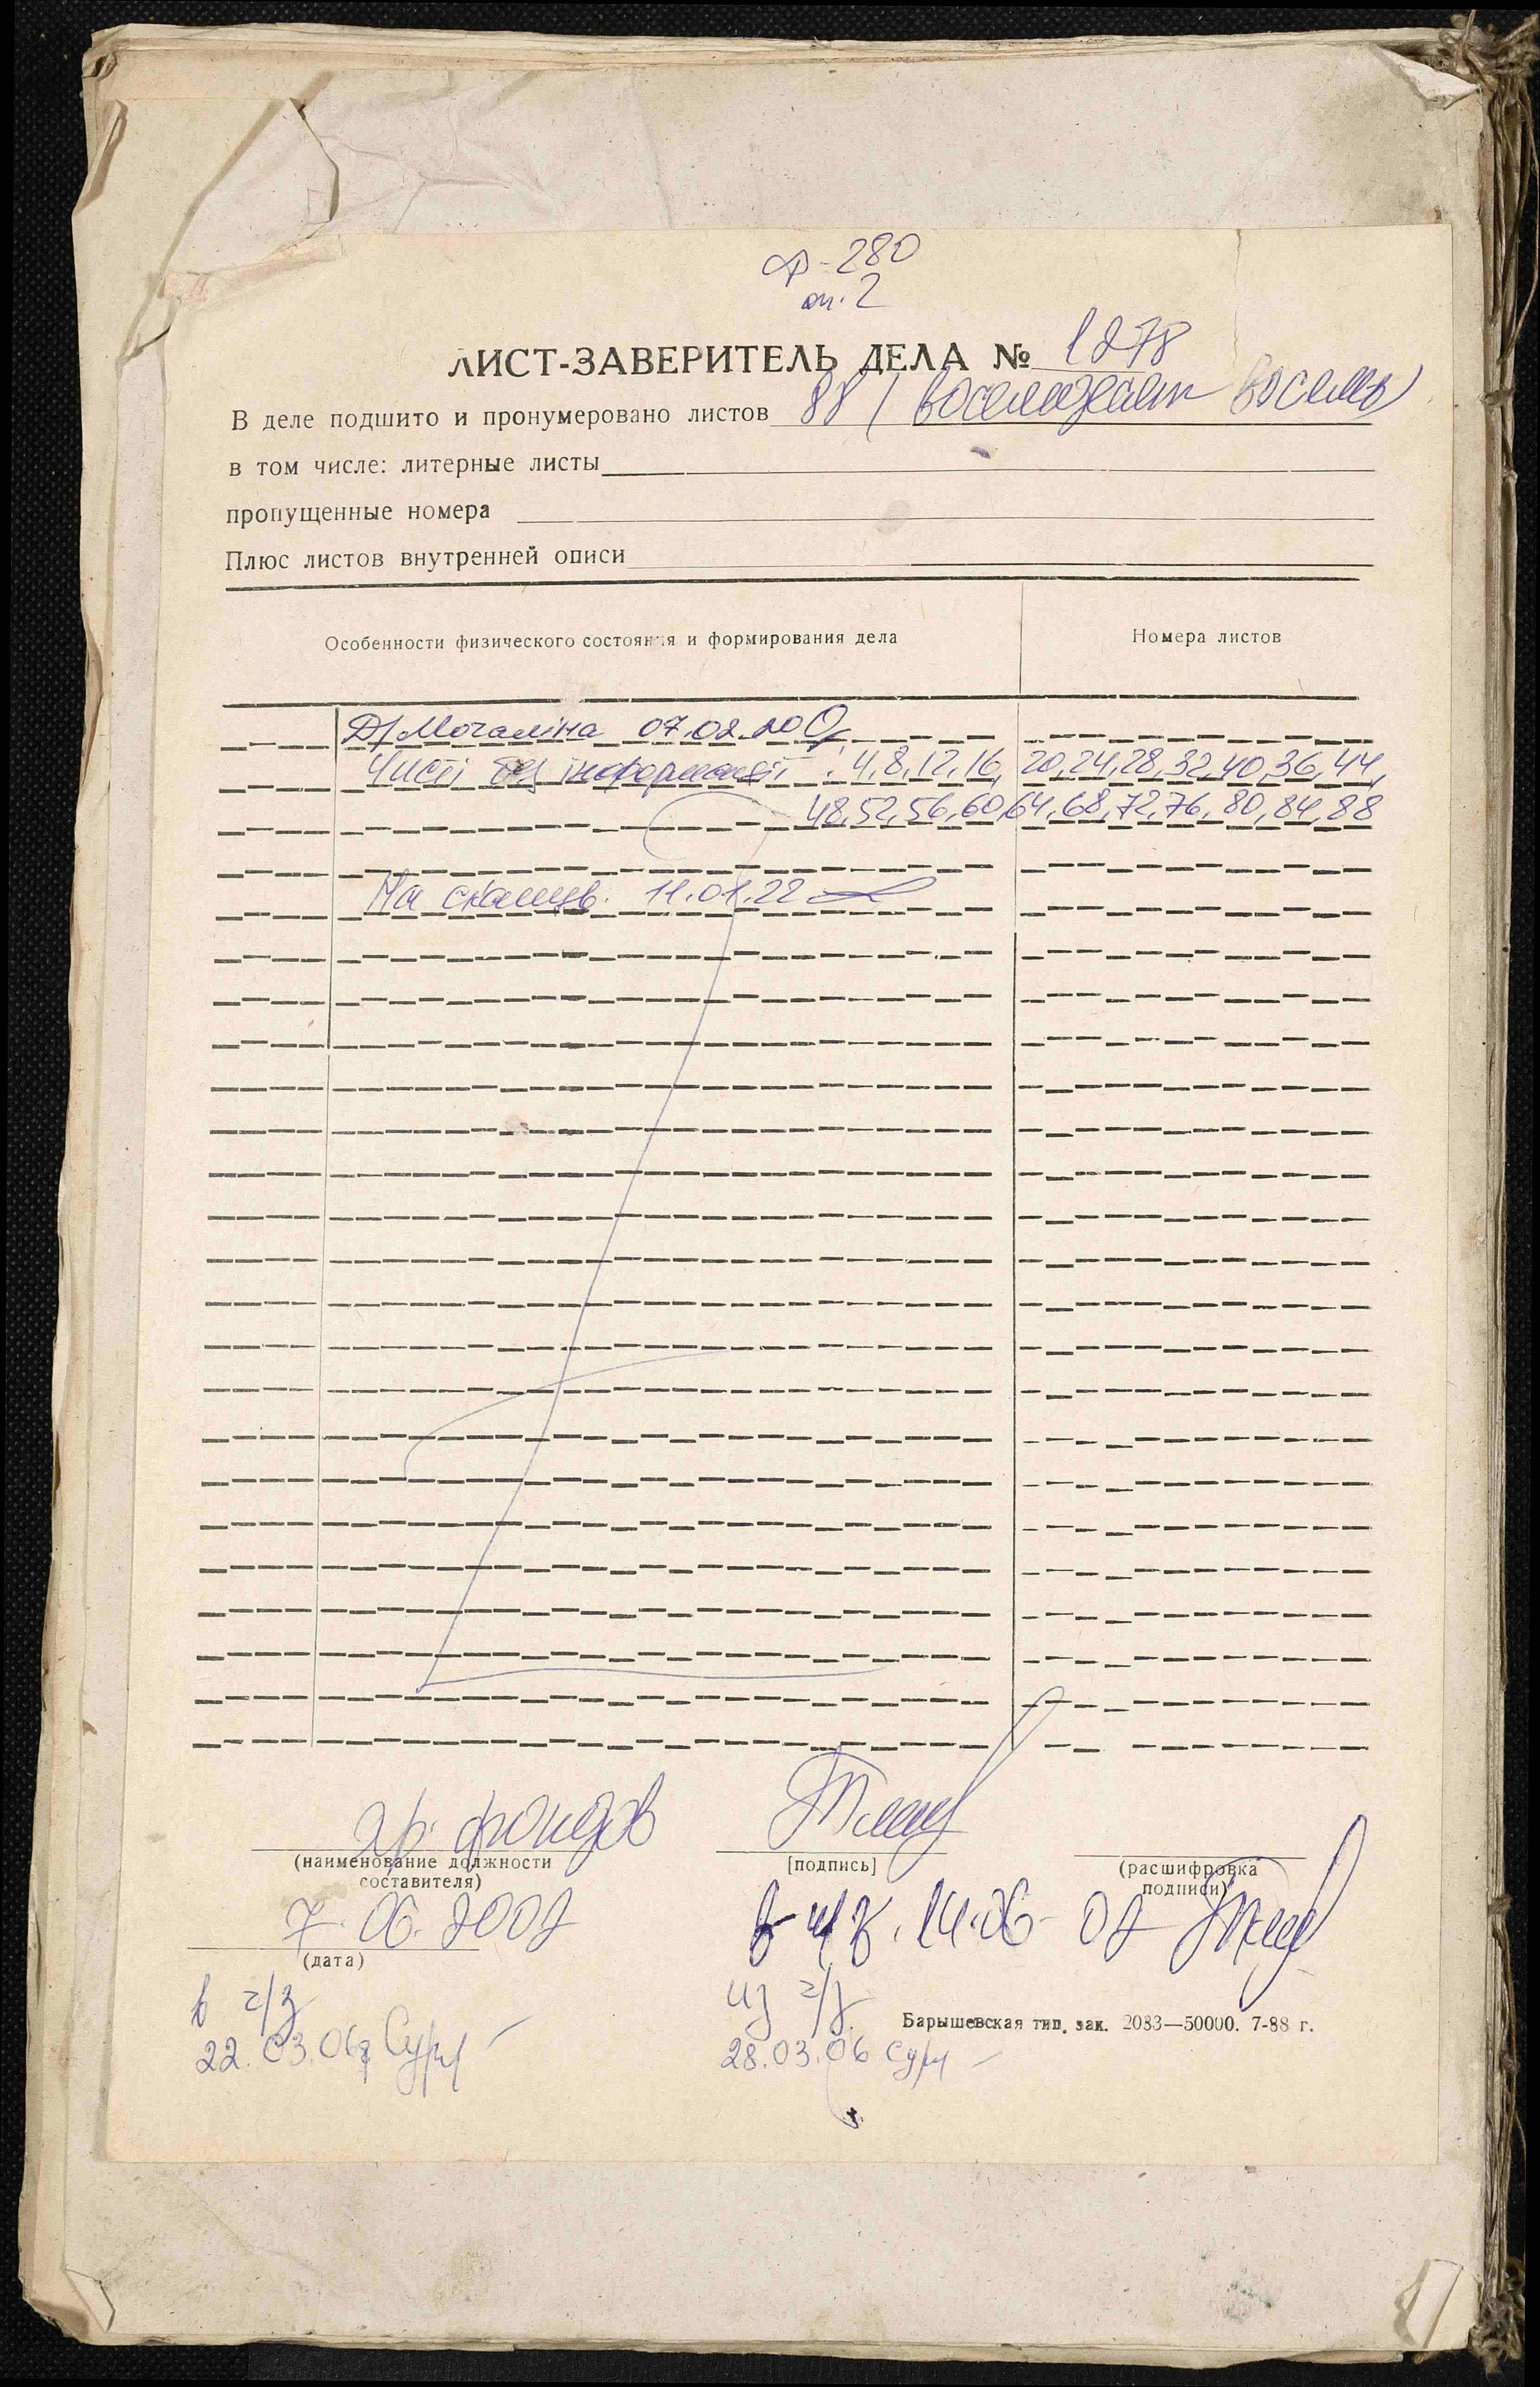 ф-280
оп. 2
ЛИСТ-ЗАВЕРИТЕЛЬ ДЕЛА № 1278
В деле подшито и пронумеровано листов 88 ( восемьдесят восемь )
в том числе: литерные листы
пропущенные номера
Плюс листов внутренней описи
Особенности физического состояния и формирования дела Номера листов
Мочаліна 07.02.200
Чисті без інформації : 4,8,12,16, 20,24,28,32,40,36,44,
48,52,56,60,64,68,72,76,80,84,88
На сканув. 11.01.22
хр. фондов
(наименование должности составителя)
[подпись]
(расшифровка подписи)
7. 06. 2002
(дата)
14.06-02
в ч/з
22.03.06
из ч/з
28.03.06
Барышевская тип. зак. 2083—50000. 7-88 г.